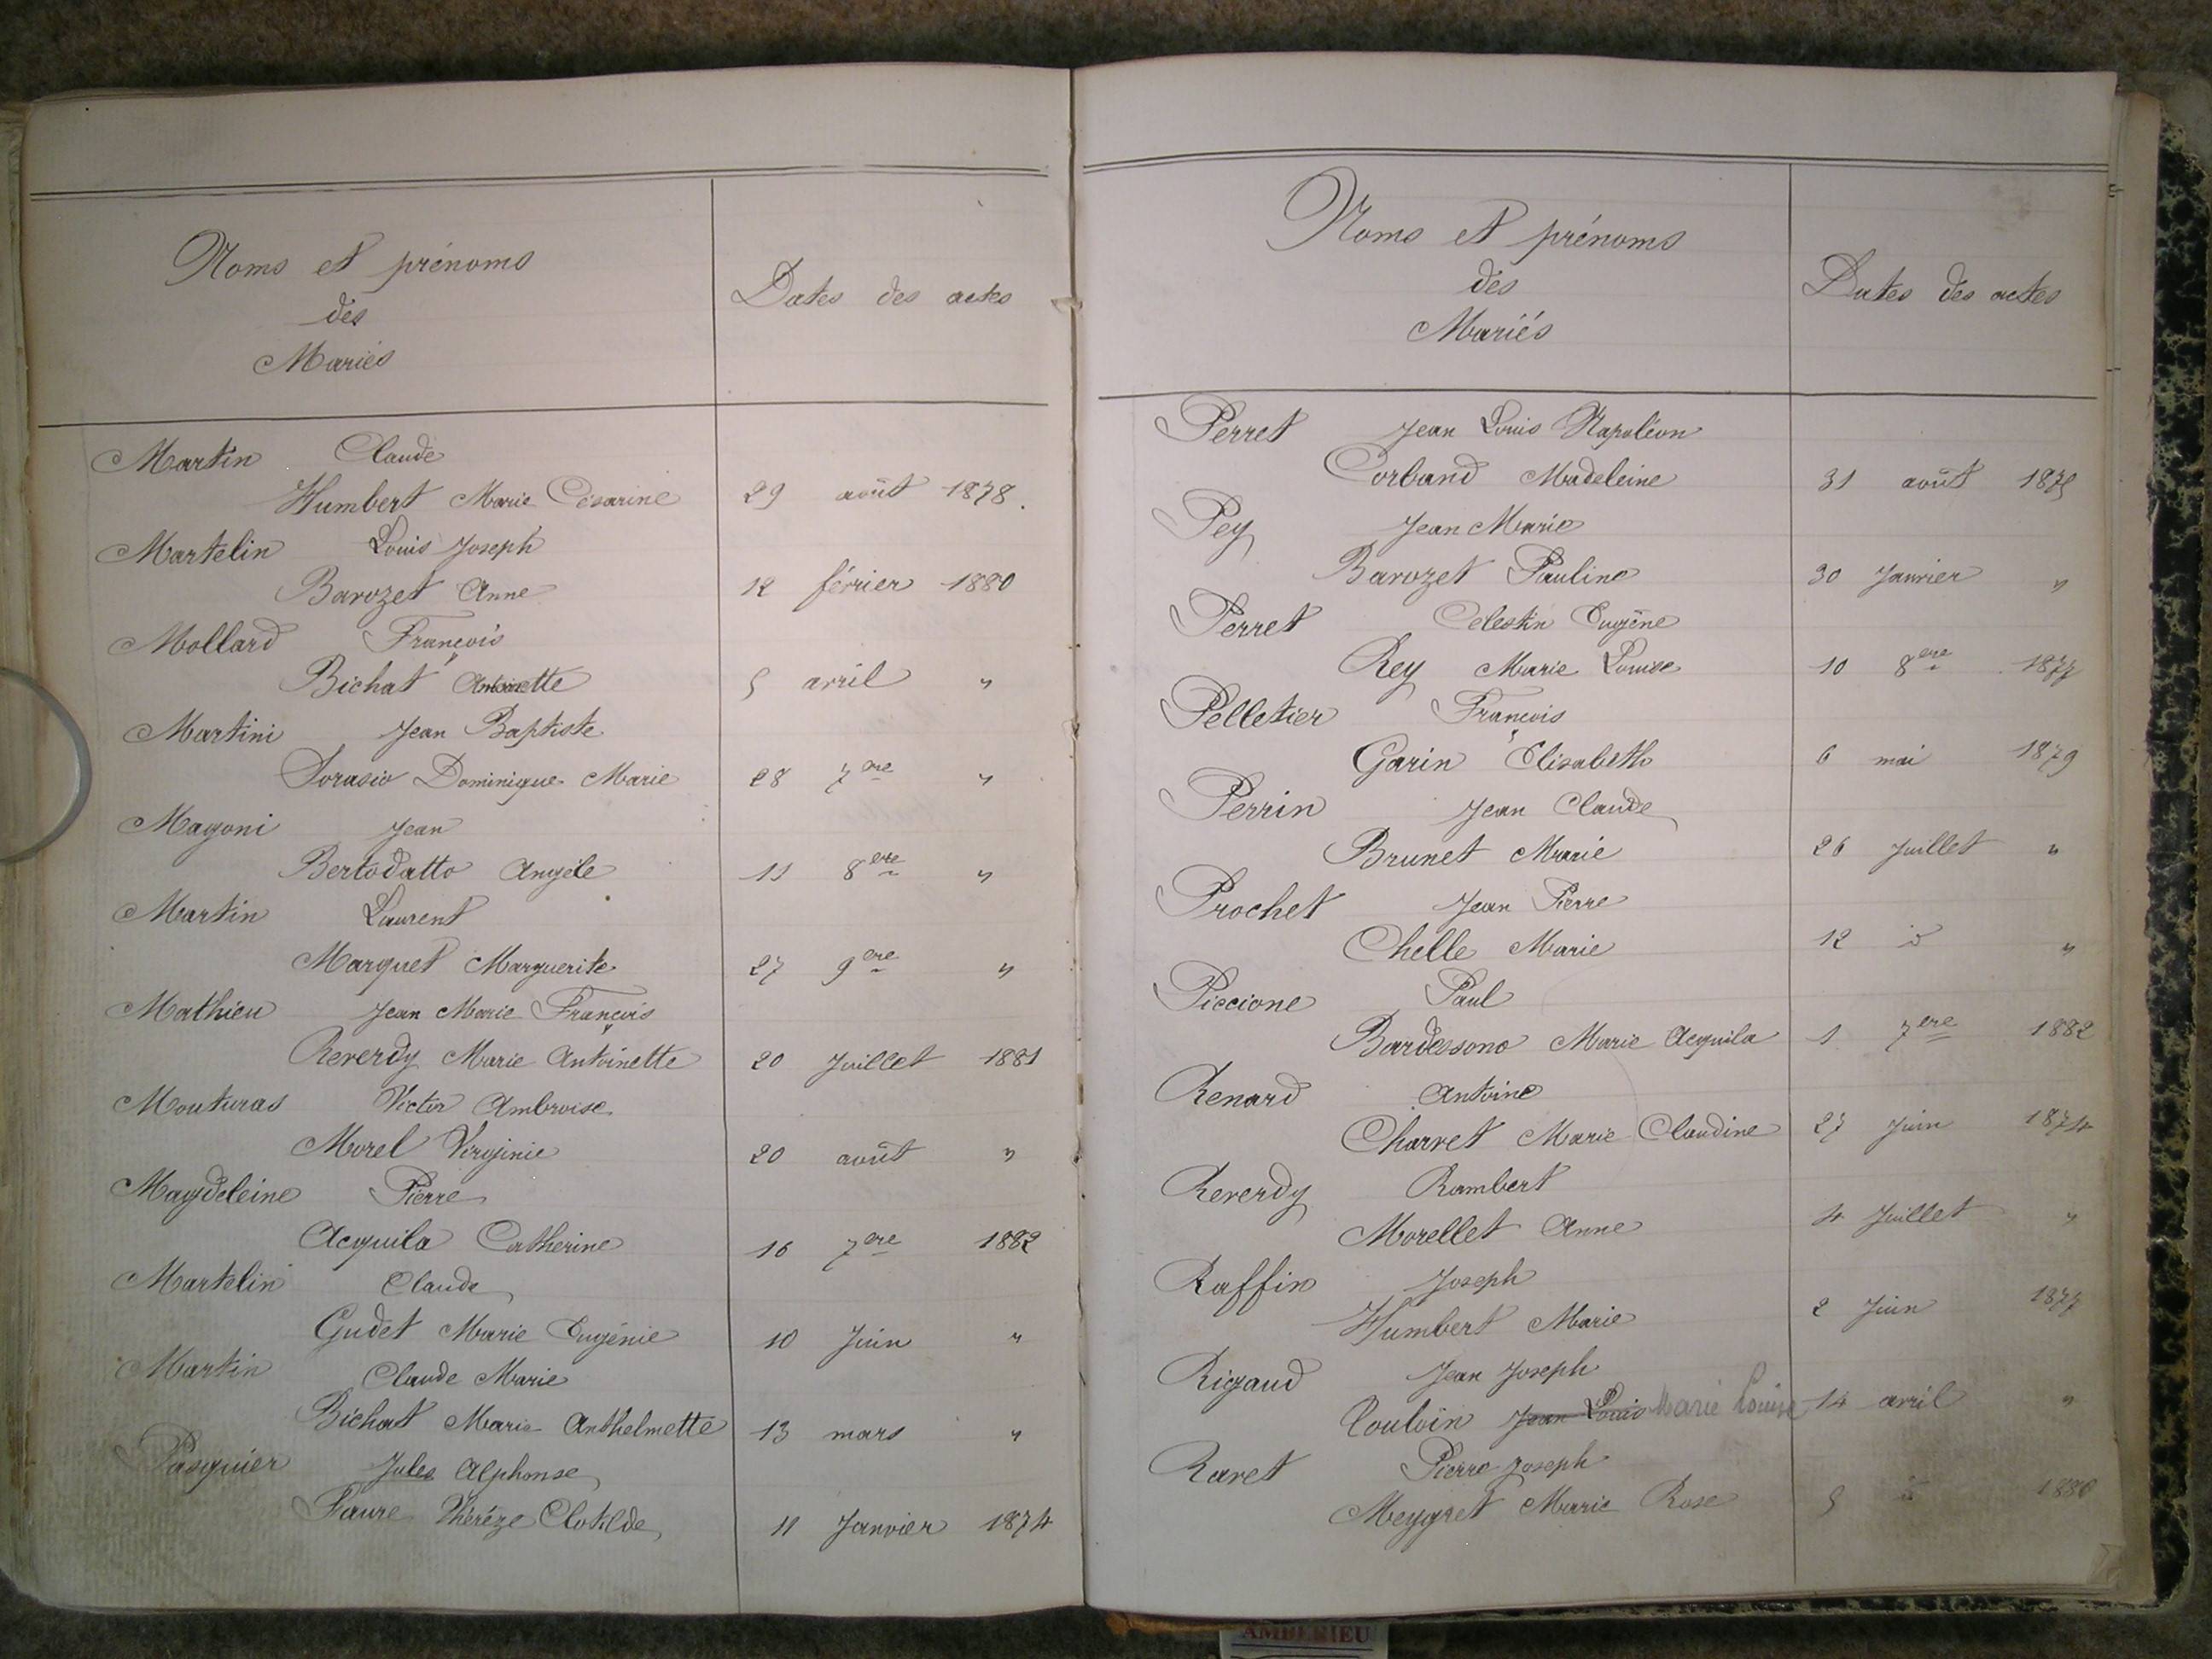 Noms et prénoms
des
Mariés
Dates des actes
Martin Claude
Humbert Marie Césarine 29 août 1878.
Martelin Louis Joseph
Barozet Anne 12 février 1880
Mollard François
Bichat Antoinette 5 avril "
Martini Jean Baptiste
Sorasio Dominique Marie 28 7ere "
Magoni Jean
Bertodatto Angèle 11 8ere "
Martin Laurent
Marquet Marguerite 27 9ere "
Mathieu Jean Marie François
Reverdy Marie Antoinette 20 Juillet 1881
Mouturas Victor Ambroise
Morel Virginie 20 août "
Magdeleine Pierre
Acquila Catherine 16 7ere 1882
Martelin Claude
Gudet Marie Eugénie 10 Juin "
Martin Claude Marie
Bichat Marie Anthelmette 13 mars "
Pasquier Jules Alphonse
Faure Thérèze Clotilde 11 Janvier 1874
Noms et prénoms
des
Mariés
Dates des actes
Perret Jean Louis Napoléon
Corband Madeleine 31 août 1875
Pey Jean Marie
Barozet Pauline 30 Janvier "
Perret Célestin Eugène
Rey Marie Louise 10 8ere 1877
Pelletier François
Garin Elisabeth 6 mai 1879
Perrin Jean Claude
Brunet Marie 26 Juillet "
Prochet Jean Pierre
Chelle Marie 12 "
Piccione Paul
Bardessono Marie Acquila 1 7ere 1882
Renard Antoine
Charvet Marie Claudine 27 Juin 1874
Reverdy Rambert
Morellet Anne 4 Juillet "
Raffin Joseph
Humbert Marie 2 Juin 1877
Rigaud Jean Joseph
Couloin Jean Louis Marie Louise 14 avril "
Ravet Pierre Joseph
Meygret Marie Rose 5 1880
AMBERIEU